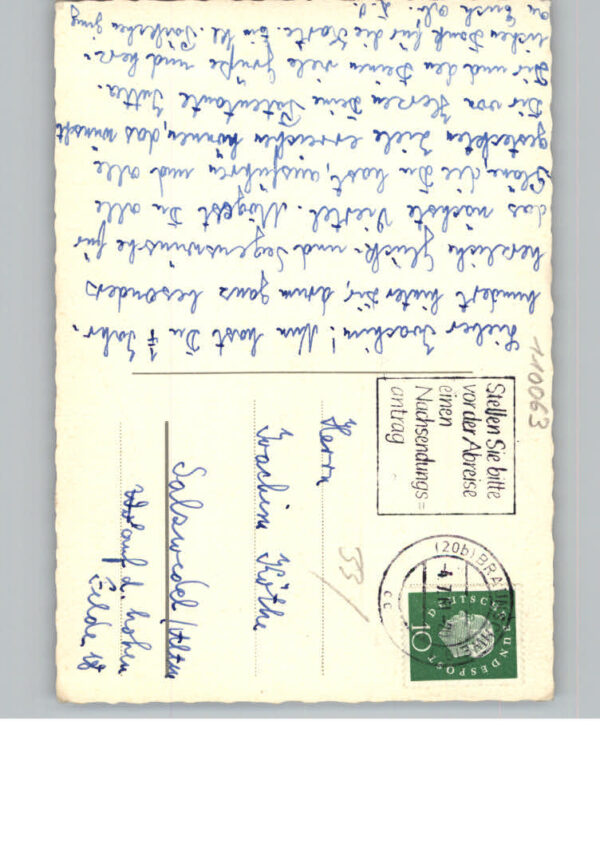 Lieber Joachim! Nun hast Du 1/4 Jahr-
hundert hinter Dir, drum ganz besonders
herzliche Glück- und Segenswünsche für
das nächste Viertel. Mögest Du alle
Pläne, die Du hast, ausführen und alle
gesteckten Ziele erreichen können, das wünscht
Dir von Herzen Deine Patentante Jutta.
Dir und den Deinen viele Grüße und herz-
lichen Dank für die Karte. Ein kl. Päckchen ging
an Euch ab.
Stellen Sie bitte
vor der Abreise
einen
Nachsendungs=
antrag
(20b) BRAUNSCHWEIG
-4.7.
cc
DEUTSCHE BUNDESPOST
10
Herrn
Joachim Köthe
Salzwedel/Altm
auf d. hohen
Felde 18
53/
110063